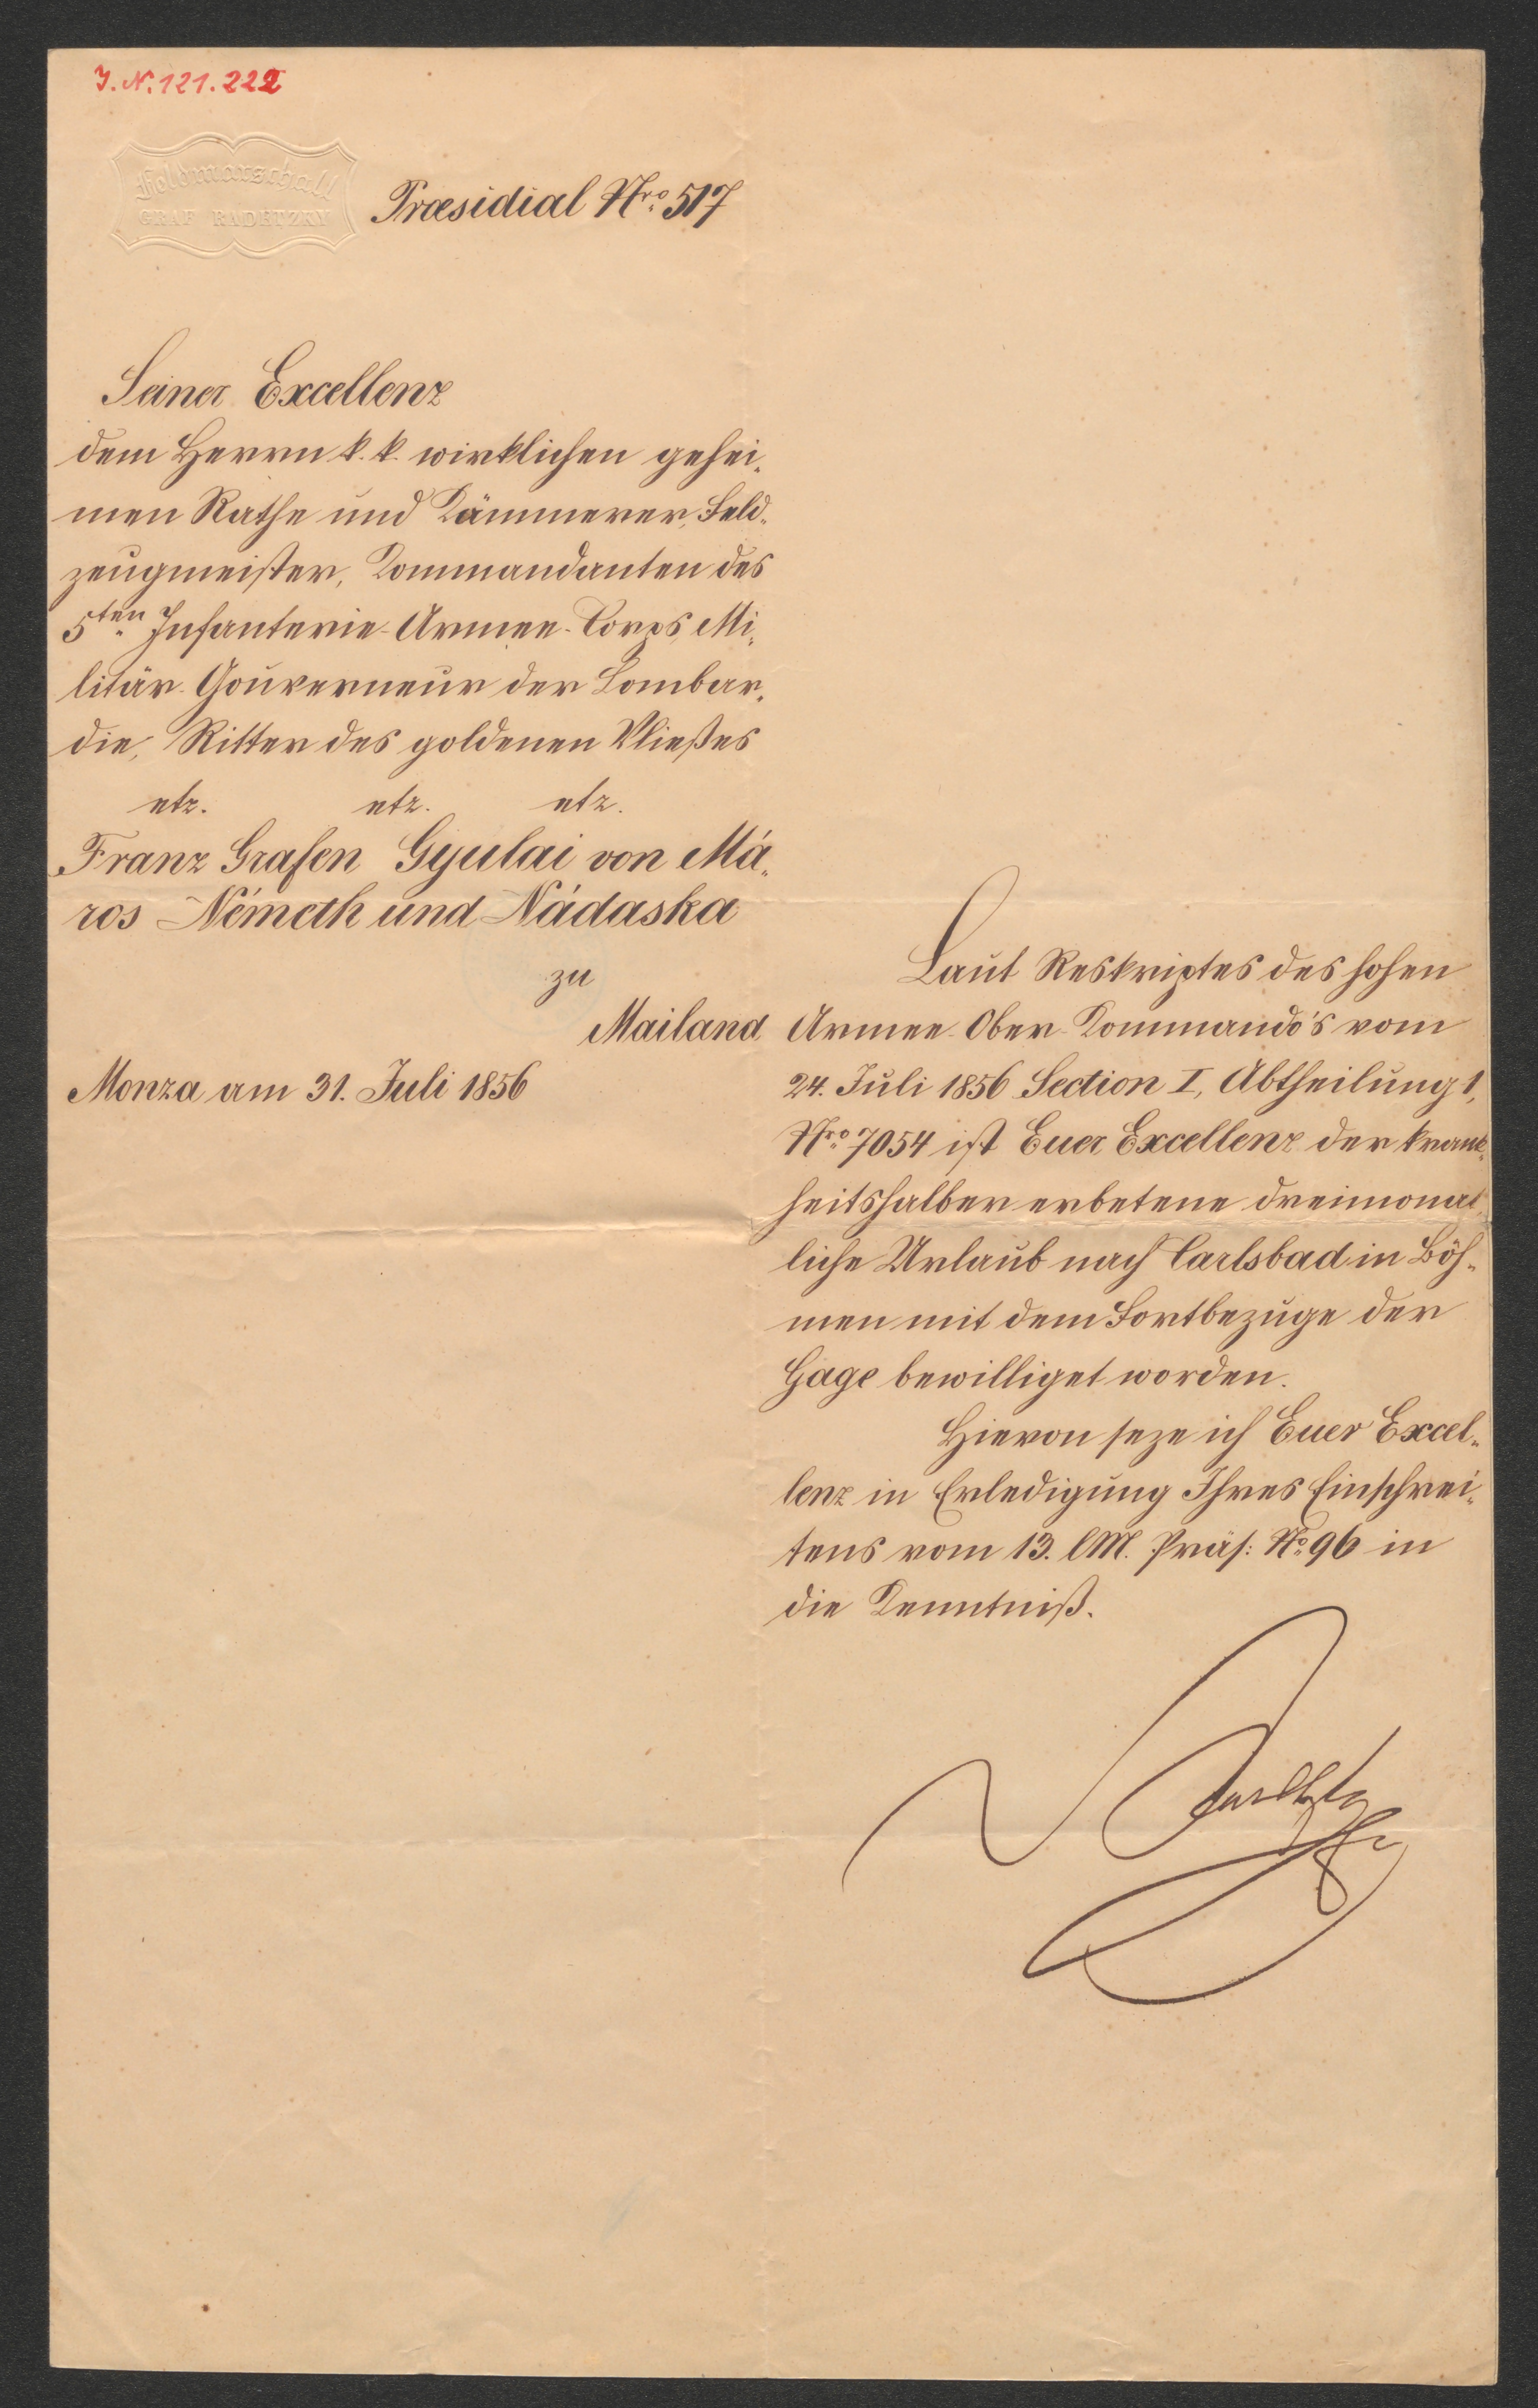 J.N. 121.222
Feldmarschall
GRAF RADETZKY
Præsidial Nro. 517
Seiner Excellenz
dem Herrn k. k. wirklichen gehei„
men Rathe und Kämmerer, Feld„
zeugmeister, Kommandanten des
5ten Infanterie-Armee-Corps, Mi„
litär-Gouverneur der Lombar„
die, Ritter des goldenen Vließes
etz. etz. etz.
Franz Grafen Gyulai von Má„
ros Németh und Nádaska
zu
Mailand
Monza am 31. Juli 1856
Laut Reskriptes des hohen
Armee-Ober-Kommando's vom
24. Juli 1856 Section I, Abtheilung 1,
Nro. 7054 ist Euer Excellenz der krank„
heitshalber erbetene dreimonat„
liche Urlaub nach Carlsbad in Böh„
men mit dem Fortbezuge der
Gage bewilliget worden.
Hievon seze ich Euer Excel„
lenz in Erledigung Ihres Einschrei„
tens vom 13. l M. Präs: No. 96 in
die Kenntniß.
Radetzky